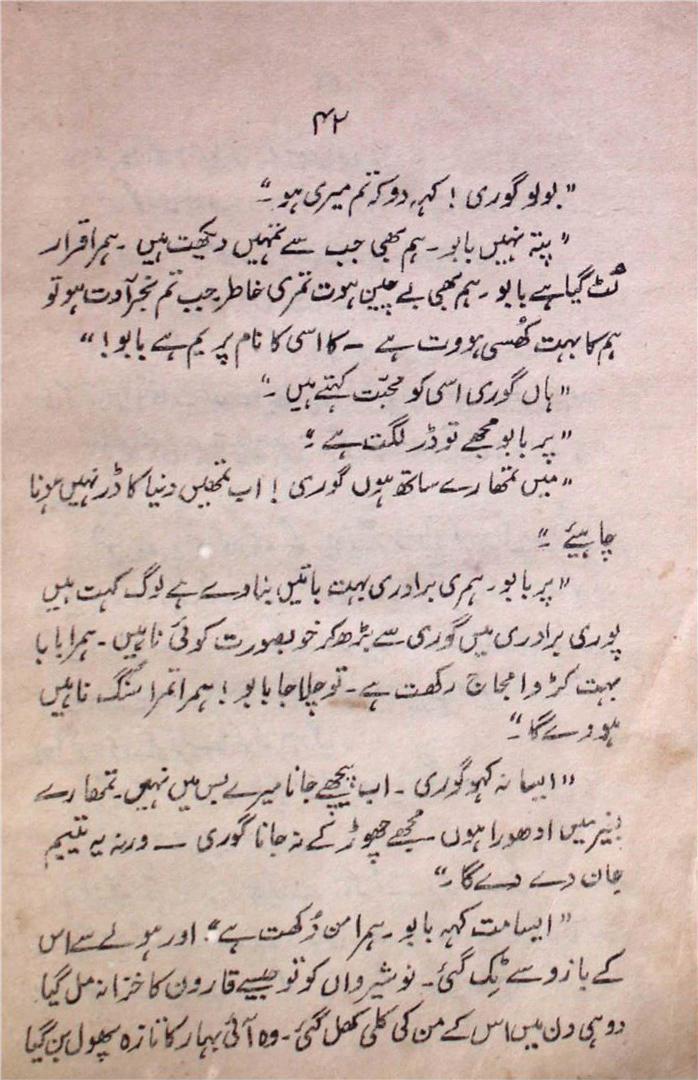 ۴۲
"بولو گوری! کہہ دو کہ تم میری ہو۔"
"پتہ نہیں بابو۔ ہم بھی جب سے تمہیں دیکھت ہیں۔ ہمرا قرار
لُٹ گیا ہے بابو۔ ہم بھی بے چین ہوت تمری خاطر جب تم نجر آوت ہو تو
ہم کا بہت کھُسی ہووت ہے ــ کا اسی کا نام پریم ہے بابو!"
"ہاں گوری اسی کو محبّت کہتے ہیں۔"
"پر بابو مجھے تو ڈر لگت ہے۔"
"میں تمھارے ساتھ ہوں گوری! اب تمھیں دنیا کا ڈر نہیں ہونا
چاہیئے۔"
"پر بابو۔ ہمری برادری بہت باتیں بناوے ہے لوگ کہت ہیں
پوری برادری میں گوری سے بڑھ کر خوبصورت کوئی ناہیں۔ ہمرا بابا
بہت کڑوا مجاج رکھت ہے۔ تو چلا جا بابو! ہمرا تمرا سنگ ناہیں
ہووے گا۔"
"ایسا نہ کہو گوری۔ اب پیچھے جانا میرے بس میں نہیں۔ تمھارے
بغیر میں ادھورا ہوں۔ مجھے چھوڑ کے نہ جانا گوری ــ ورنہ یہ یتیم
جان دے دے گا۔"
"ایسا مت کہہ بابو۔ ہمرا من دُکھت ہے"۔ اور ہولے سے اس
کے بازو سے ٹِک گئی۔ نوشیرواں کو تو جیسے قارون کا خزانہ مل گیا۔
دو ہی دن میں اس کے من کی کلی کھل گئی۔ وہ آئی بہار کا تازہ پھول بن گیا